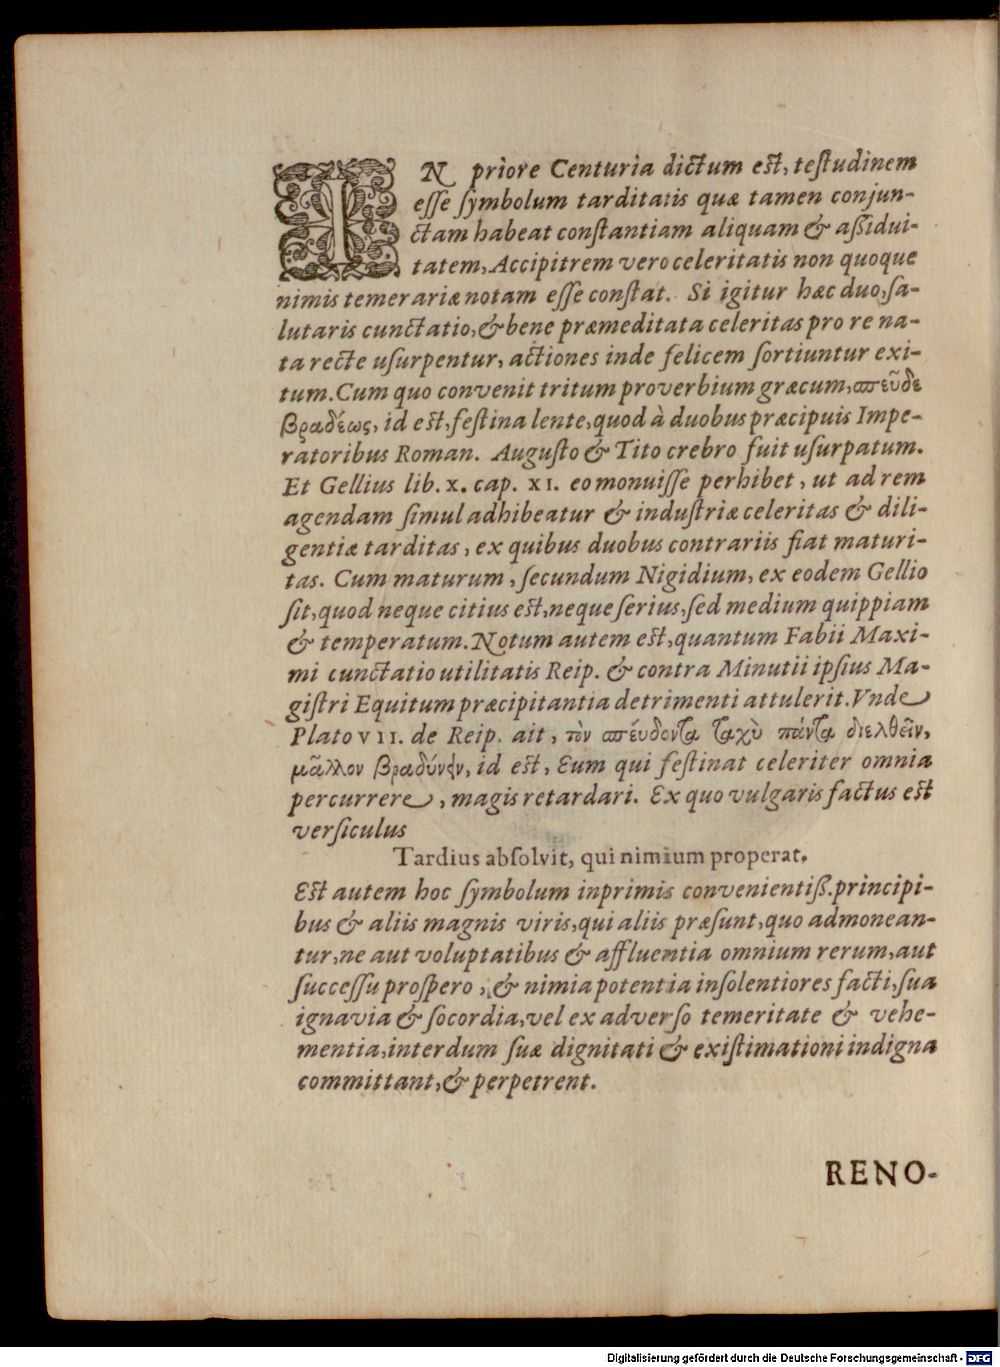 IN priore Centuria dictum est, teſtudinem
eſſe ſymbolum tarditatis quæ tamen conjun-
ctam habeat conſtantiam aliquam & aſſidui-
tatem, Accipitrem vero celeritatis non quoque
nimis temerariæ notam eſſe conſtat. Si igitur hæc duo, ſa-
lutaris cunctatio, & bene præmeditata celeritas pro re na-
ta recte uſurpentur, actiones inde felicem ſortiuntur exi-
tum. Cum quo convenit tritum proverbium græcum, σπεῦδε
βραδέως, id est, feſtina lente, quod à duobus præcipuis Impe-
ratoribus Roman. Auguſto & Tito crebro fuit uſurpatum.
Et Gellius lib. X. cap. XI. eo monuiſſe perhibet, ut ad rem
agendam ſimul adhibeatur & induſtriæ celeritas & dili-
gentiæ tarditas, ex quibus duobus contrariis fiat maturi-
tas. Cum maturum, ſecundum Nigidium, ex eodem Gellio
ſit, quod neque citius est, neque ſerius, ſed medium quippiam
& temperatum. Notum autem est, quantum Fabii Maxi-
mi cunctatio utilitatis Reip. & contra Minutii ipſius Ma-
giſtri Equitum præcipitantia detrimenti attulerit. Vnde
Plato VII. de Reip. ait, τὸν σπέυδοντα ταχὺ πάντα διελθεῖν,
μᾶλλον βραδύνειν, id est, Eum qui feſtinat celeriter omnia
percurrere, magis retardari. Ex quo vulgaris factus est
verſiculus
Tardius abſolvit, qui nimium properat.
Est autem hoc ſymbolum inprimis convenientiß. principi-
bus & aliis magnis viris, qui aliis præſunt, quo admonean-
tur, ne aut voluptatibus & affluentia omnium rerum, aut
ſucceſſu proſpero, & nimia potentia inſolentiores facti, ſua
ignavia & ſocordia, vel ex adverſo temeritate & vehe-
mentia, interdum ſuæ dignitati & exiſtimationi indigna
committant, & perpetrent.
RENO-
Digitalisierung gefördert durch die Deutsche Forschungsgemeinschaft - DFG